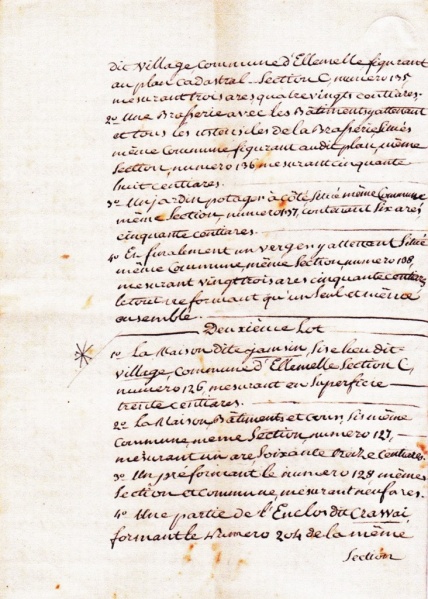 dit village, Commune d'Ellemelle figurant
au plan cadastral Section C, numero 135
mesurant trois ares quatre vingts centiares.
2º Une Brasserie avec les Bâtiments y attenant
et tous les ustensiles de la Brasserie situés
même Commune, figurant audit plan, même
Section, numero 136 mesurant cinquante
huit centiares.
3º Un jardin potager à côté situé même Commune
même Section, numero 137, contenant six ares
cinquante centiares.
4º En finalement un verger y attenant situé
même Commune, même Section, numero 138,
mesurant vingt trois ares cinquante centiares
le tout ne formant qu'un seul et même
ensemble.
Deuxième Lot
1º La Maison dite Jamsin, sise lieu dit
village, Commune d'Ellemelle Section C,
numero 126, mesurant en superficie
trente centiares.
2º La Maison Bâtiments et cour, sis même
Commune, même Section, numero 127,
mesurant un are soixante treize centiares.
3º Un pré formant le numero 128 mêmes
Section et commune, mesurant neuf ares.
4º Une partie de l'Enclos dit Crawai
formant le Numero 204 de la même
Section